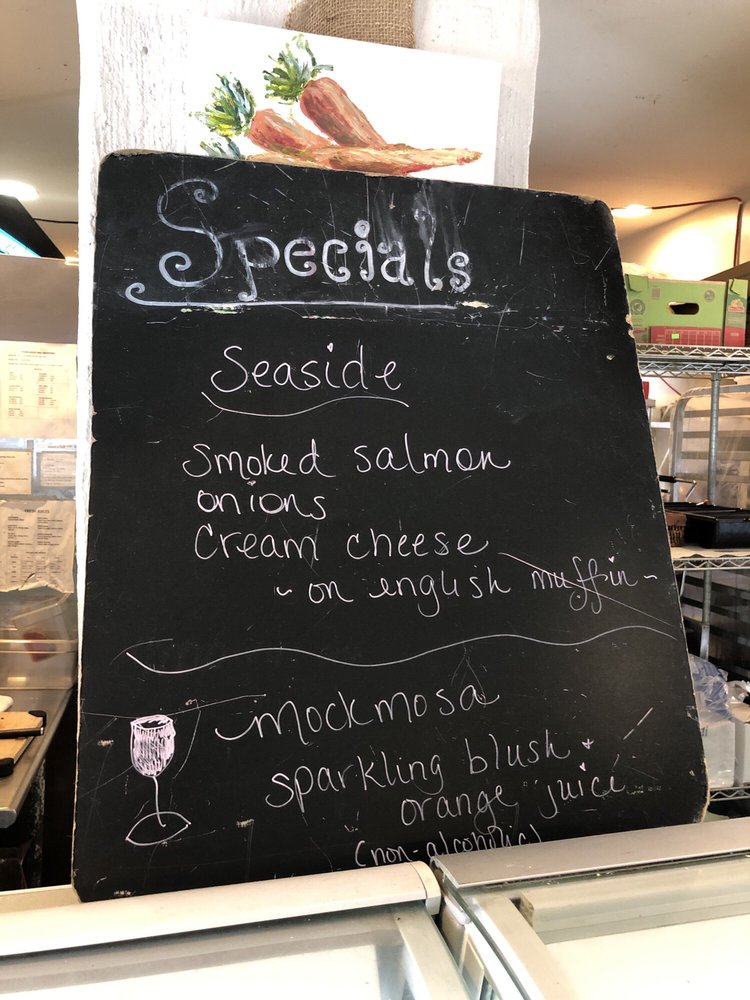 Specials
Seaside
Smoked salmon
onions
Cream cheese
~ on english muffin ~
mockmosa
sparkling blush +
orange juice
(non-alcoholic)